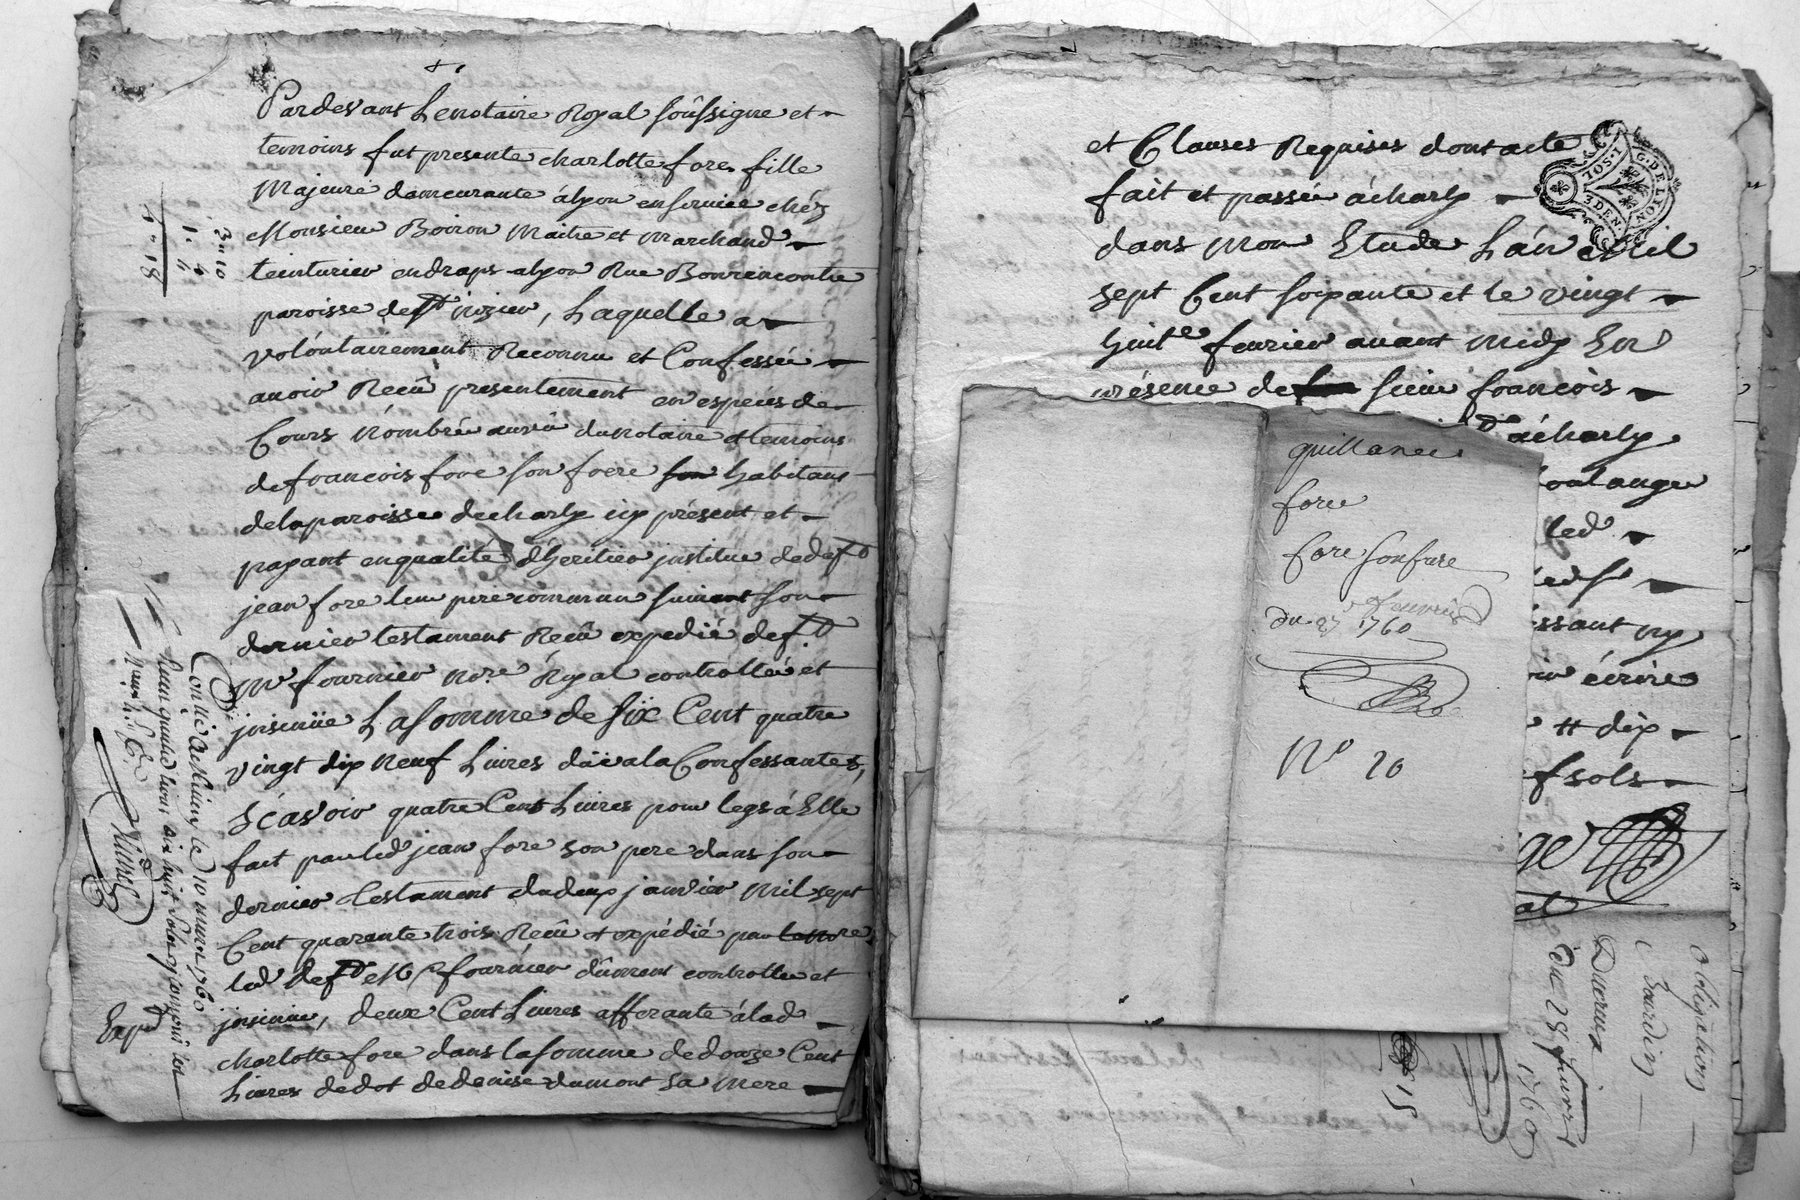 Pardevant Le notaire Royal soussigne et
temoins fut presente charlotte fore fille
Majeure demeurante a lyon en service chéz
Monsieur Boiron Maitre et Marchand
teinturier en draps a lyon Rue Bonrencontre
paroisse de st nizier, Laquelle a
volontairement Reconnu et Confessée
avoir Recû presentement en espèces de
Cours Nombré au vû du notaire et temoins
de francois fore son frere son habitant
de la paroisse de charly icy présent et
payant en qualité d'héritier institue de deft
jean fore leur pere commun suivant son
dernier testament Recû expedié deft
Me fournier nore Royal controllée et
insinüe La somme de Six Cent quatre
vingt dix Neuf Livres düe a la Confessante
Scavoir quatre Cent Livres pour legs á Elle
fait par led jean fore son pere dans son
dernier testament du deux janvier Mil sept
Cent quarante trois Recû et expédié par
led deft Me fournier dûment controlle et
insinue, deux Cent Livres afferante á lad
charlotte fore dans la somme de douze Cent
Livres de dot de denise dumont sa Mere
3 " 10
1 " 4
4 " 18
Expd
et Clauses Requises dont acte
fait et passée á charly
dans Mon Etude L'án Mil
sept Cent soixante et le vingt
huite fevrier avant Midy En
présence de sieur francois
á charly
led
issant ny
écrire
# dix
f sols
G. DE LYON
1 SOL
3 DEN
quittance
fore
fore son frere
du 27 fevrier
1760
No 20
15
Obligation
Jourdin
Ducreux
du 28 fevrier
1760